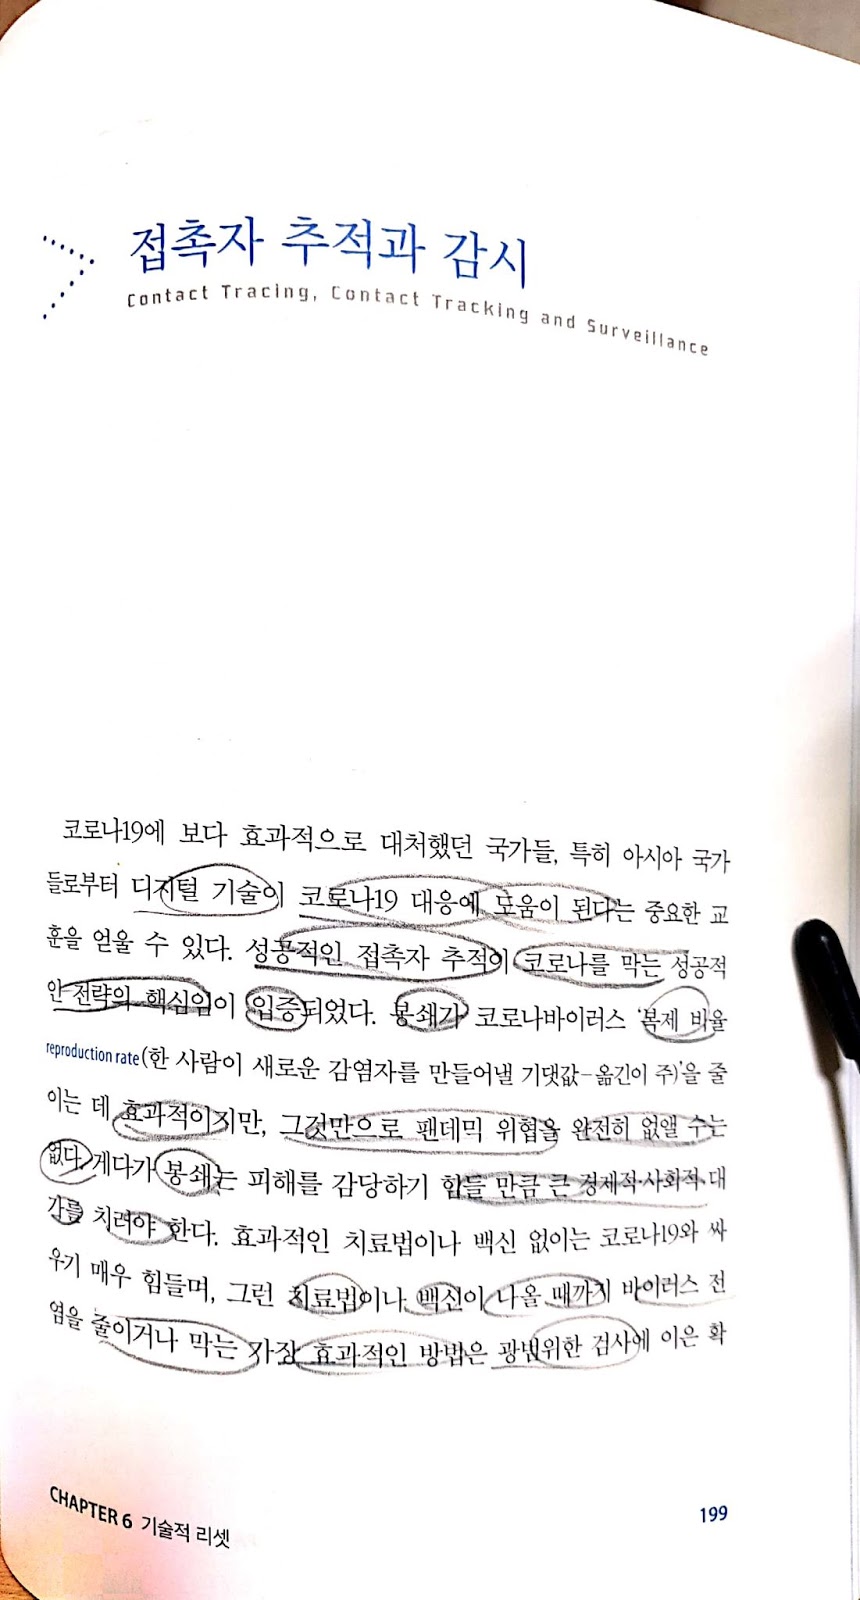 접촉자 추적과 감시
Contact Tracing, Contact Tracking and Surveillance
코로나19에 보다 효과적으로 대처했던 국가들, 특히 아시아 국가
들로부터 디지털 기술이 코로나19 대응에 도움이 된다는 중요한 교
훈을 얻을 수 있다. 성공적인 접촉자 추적이 코로나를 막는 성공적
인 전략의 핵심임이 입증되었다. 봉쇄가 코로나바이러스 '복제 비율
reproduction rate(한 사람이 새로운 감염자를 만들어낼 기댓값-옮긴이 주)'을 줄
이는 데 효과적이지만, 그것만으로 팬데믹 위협을 완전히 없앨 수는
없다. 게다가 봉쇄는 피해를 감당하기 힘들 만큼 큰 경제적·사회적 대
가를 치러야 한다. 효과적인 치료법이나 백신 없이는 코로나19와 싸
우기 매우 힘들며, 그런 치료법이나 백신이 나올 때까지 바이러스 전
염을 줄이거나 막는 가장 효과적인 방법은 광범위한 검사에 이은 확
CHAPTER 6 기술적 리셋
199